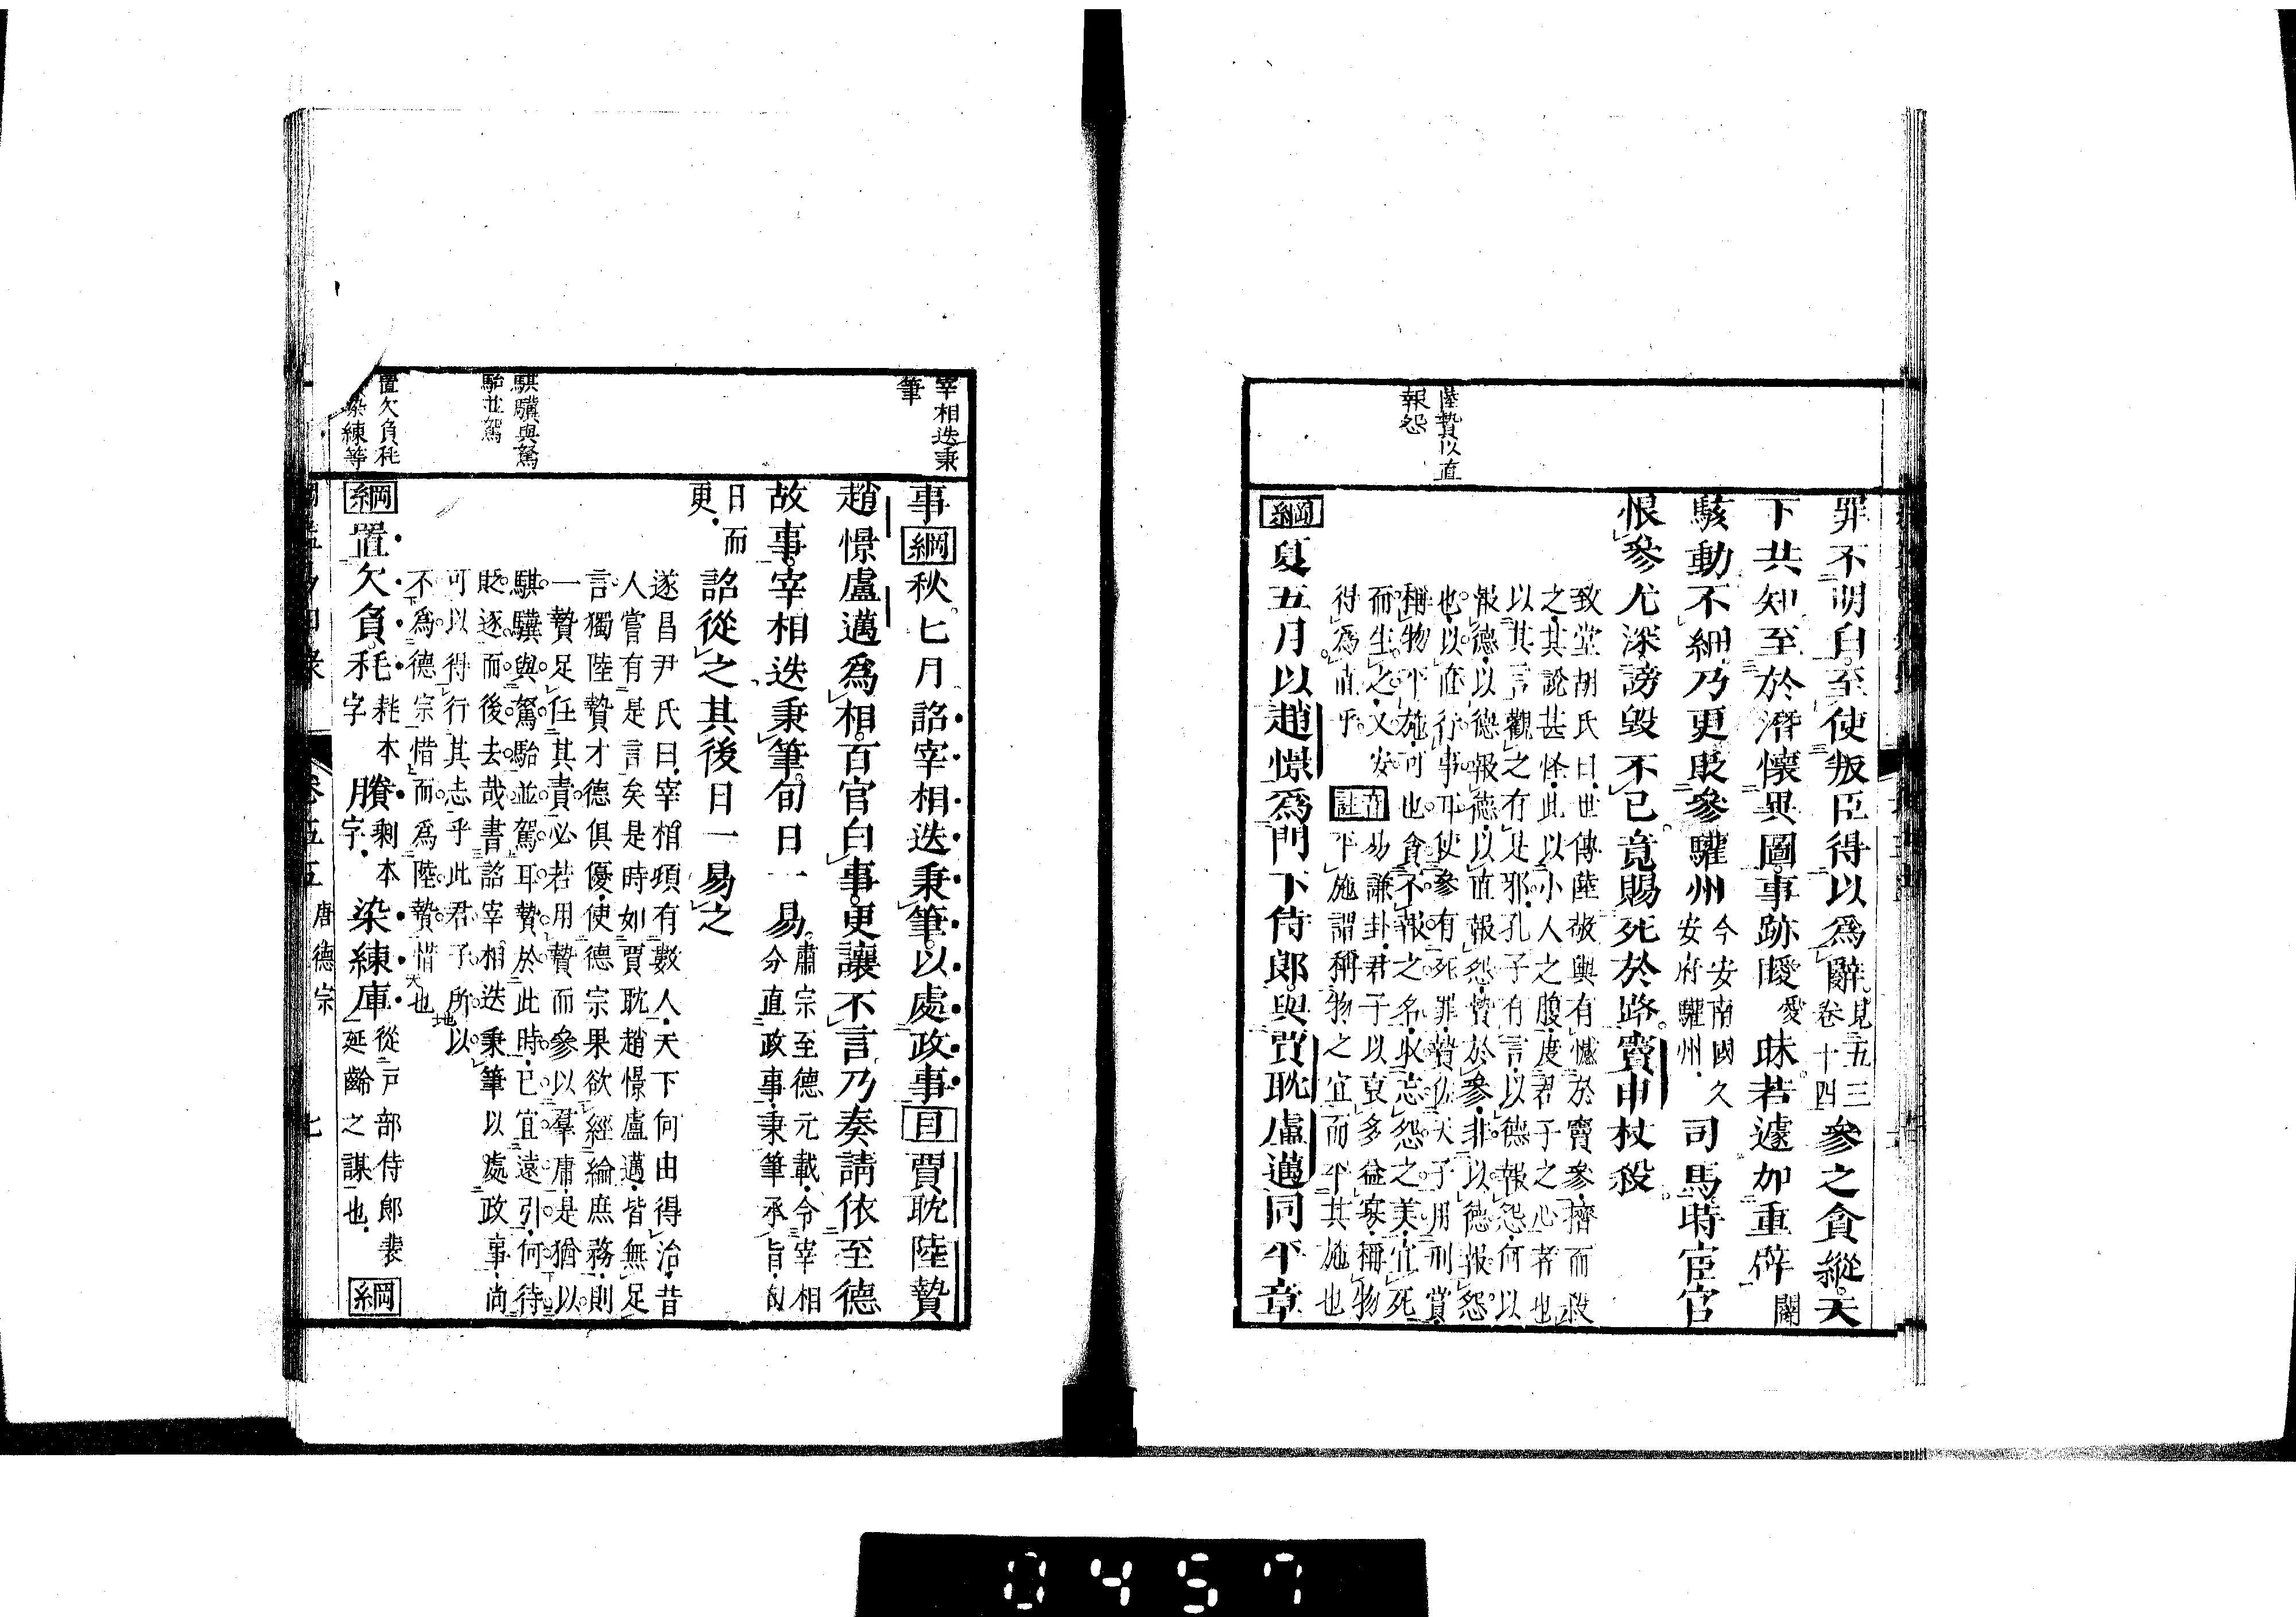 陸贄以直
報怨
罪不明白至使叛臣得以爲辭見五三卷十四參之貪縱天
下共知至於潛懷異圖事跡曖愛昧若遽加重辟闢
駭動不細乃更貶參驩州今安南國乂安府驩州司馬時宦官
恨參尤深謗毀不已竟賜死於路竇申杖殺
致堂胡氏曰世傳陸敬輿有憾於竇參擠而殺
之其說甚怪此以小人之腹度君子之心者也
以其言觀之有是邪孔子有言以德報怨何以
報德以德報德以直報怨贄於參非以德報怨
也以直行事耳使參有死罪贄佐天子用刑賞
稱物平施可也貪不報之名收忘怨之美宜死
而生之又安
得爲直乎
音註易謙卦君子以裒多益寡稱物
平施謂稱物之宜而平其施也
綱夏五月以趙憬爲門下侍郎與賈耽盧邁同平章
宰相迭秉
筆
騏驥與駑
駘並駕
置欠負耗
染練等
事綱秋七月詔宰相迭秉筆以處政事目賈耽陸贄
趙憬盧邁爲相百官白事更讓不言乃奏請依至德
故事宰相迭秉筆旬日一易肅宗至德元載令宰相分直政事秉筆承旨旬
日而更詔從之其後日一易之
遂昌尹氏曰宰相項有數人天下何由得治昔
人嘗有是言矣是時如賈耽趙憬盧邁皆無足
言獨陸贄才德俱優使德宗果欲經綸庶務則
一贄足任其責必若用贄而參以羣庸是猶以
騏驥與駑駘並駕耳贄於此時已宜遠引何待
貶逐而後去哉書詔宰相迭秉筆以處政事尚
可以得行其志乎此君子所以
不爲德宗惜而爲陸贄惜也
綱置欠負耗耗本字賸剩本字染練庫從戶部侍郎裴延齡之謀也綱
卷五五 唐德宗 七
0457